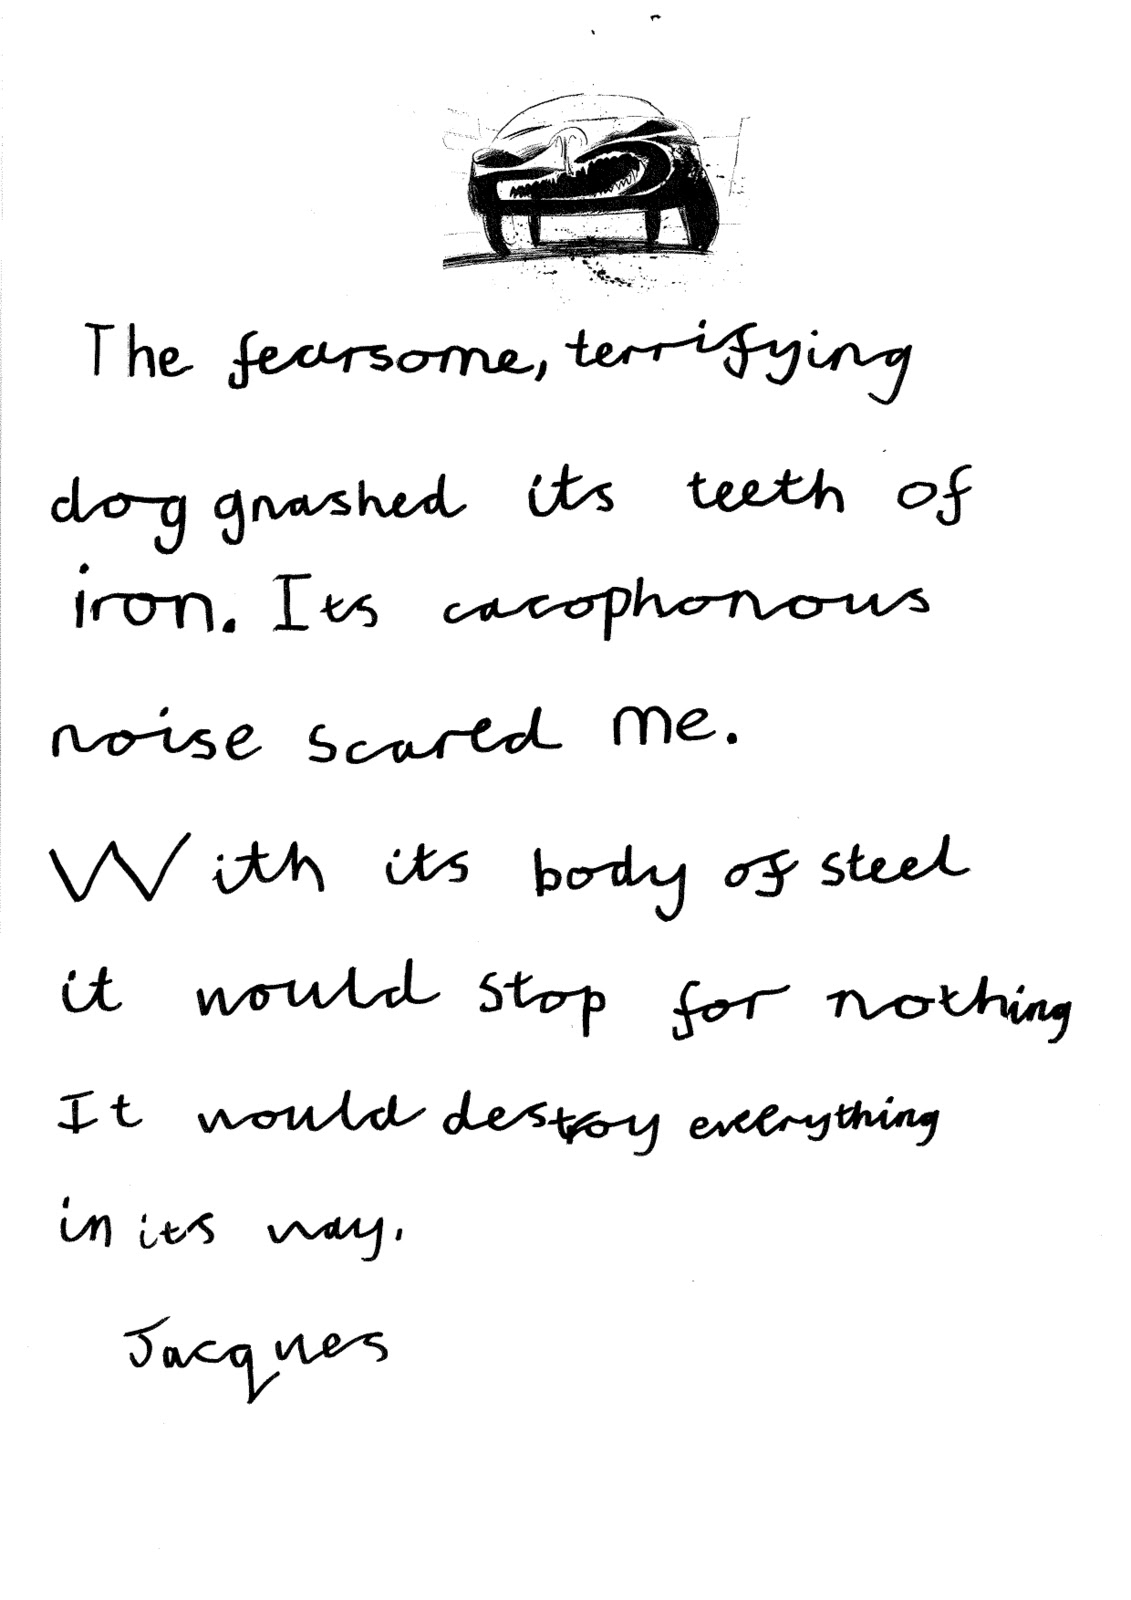 The fearsome, terrifying
dog gnashed its teeth of
iron. Its cacophonous
noise scared me.
With its body of steel
it would stop for nothing
It would destroy everything
in its way.
Jacques